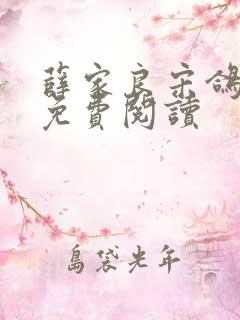 薛家良宋鴿
免費閱讀
島袋光年